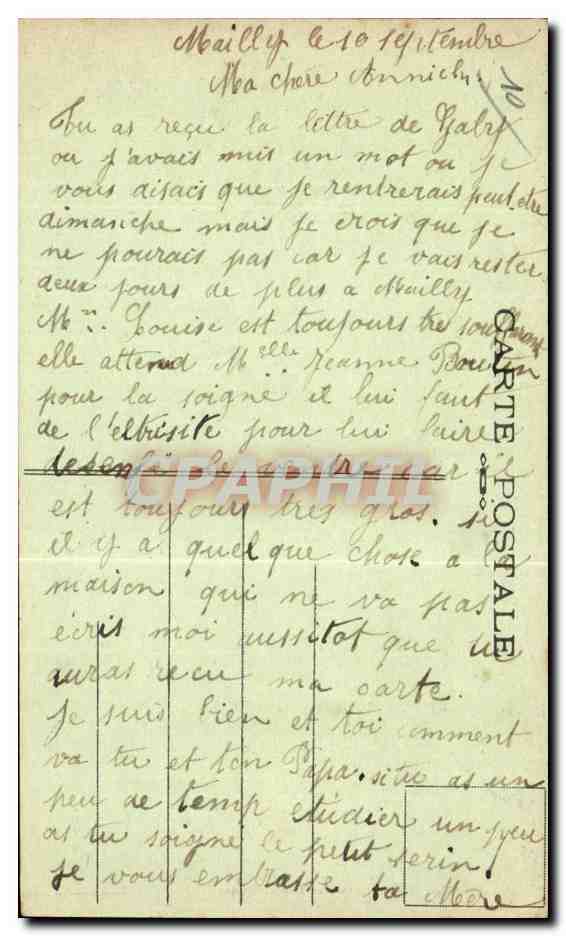 Mailly le 10 septembre
Ma chere Annick
10
Tu as reçu la lettre de Gaby
ou j'avais mis un mot ou je
vous disais que je rentrerais peut etre
dimanche mais je crois que je
ne pourais pas car je vais rester
deux jours de plus a Mailly
Louise est toujours tres souffrant
elle attend Melle Jeanne
pour la soigné il lui faut
de l'eltrisite pour lui faire
desenfle le ventre car il
est toujours tres gros. si
il y a quelque chose a la
maison qui ne va pas
écris moi aussitot que tu
auras recu ma carte.
Je suis bien et toi comment
va tu et ton Papa. si tu as un
peu de temp etudier un peu
as tu soigné le petit serin.
je vous embrasse ta Mère
CARTE POSTALE
CPAPHIL